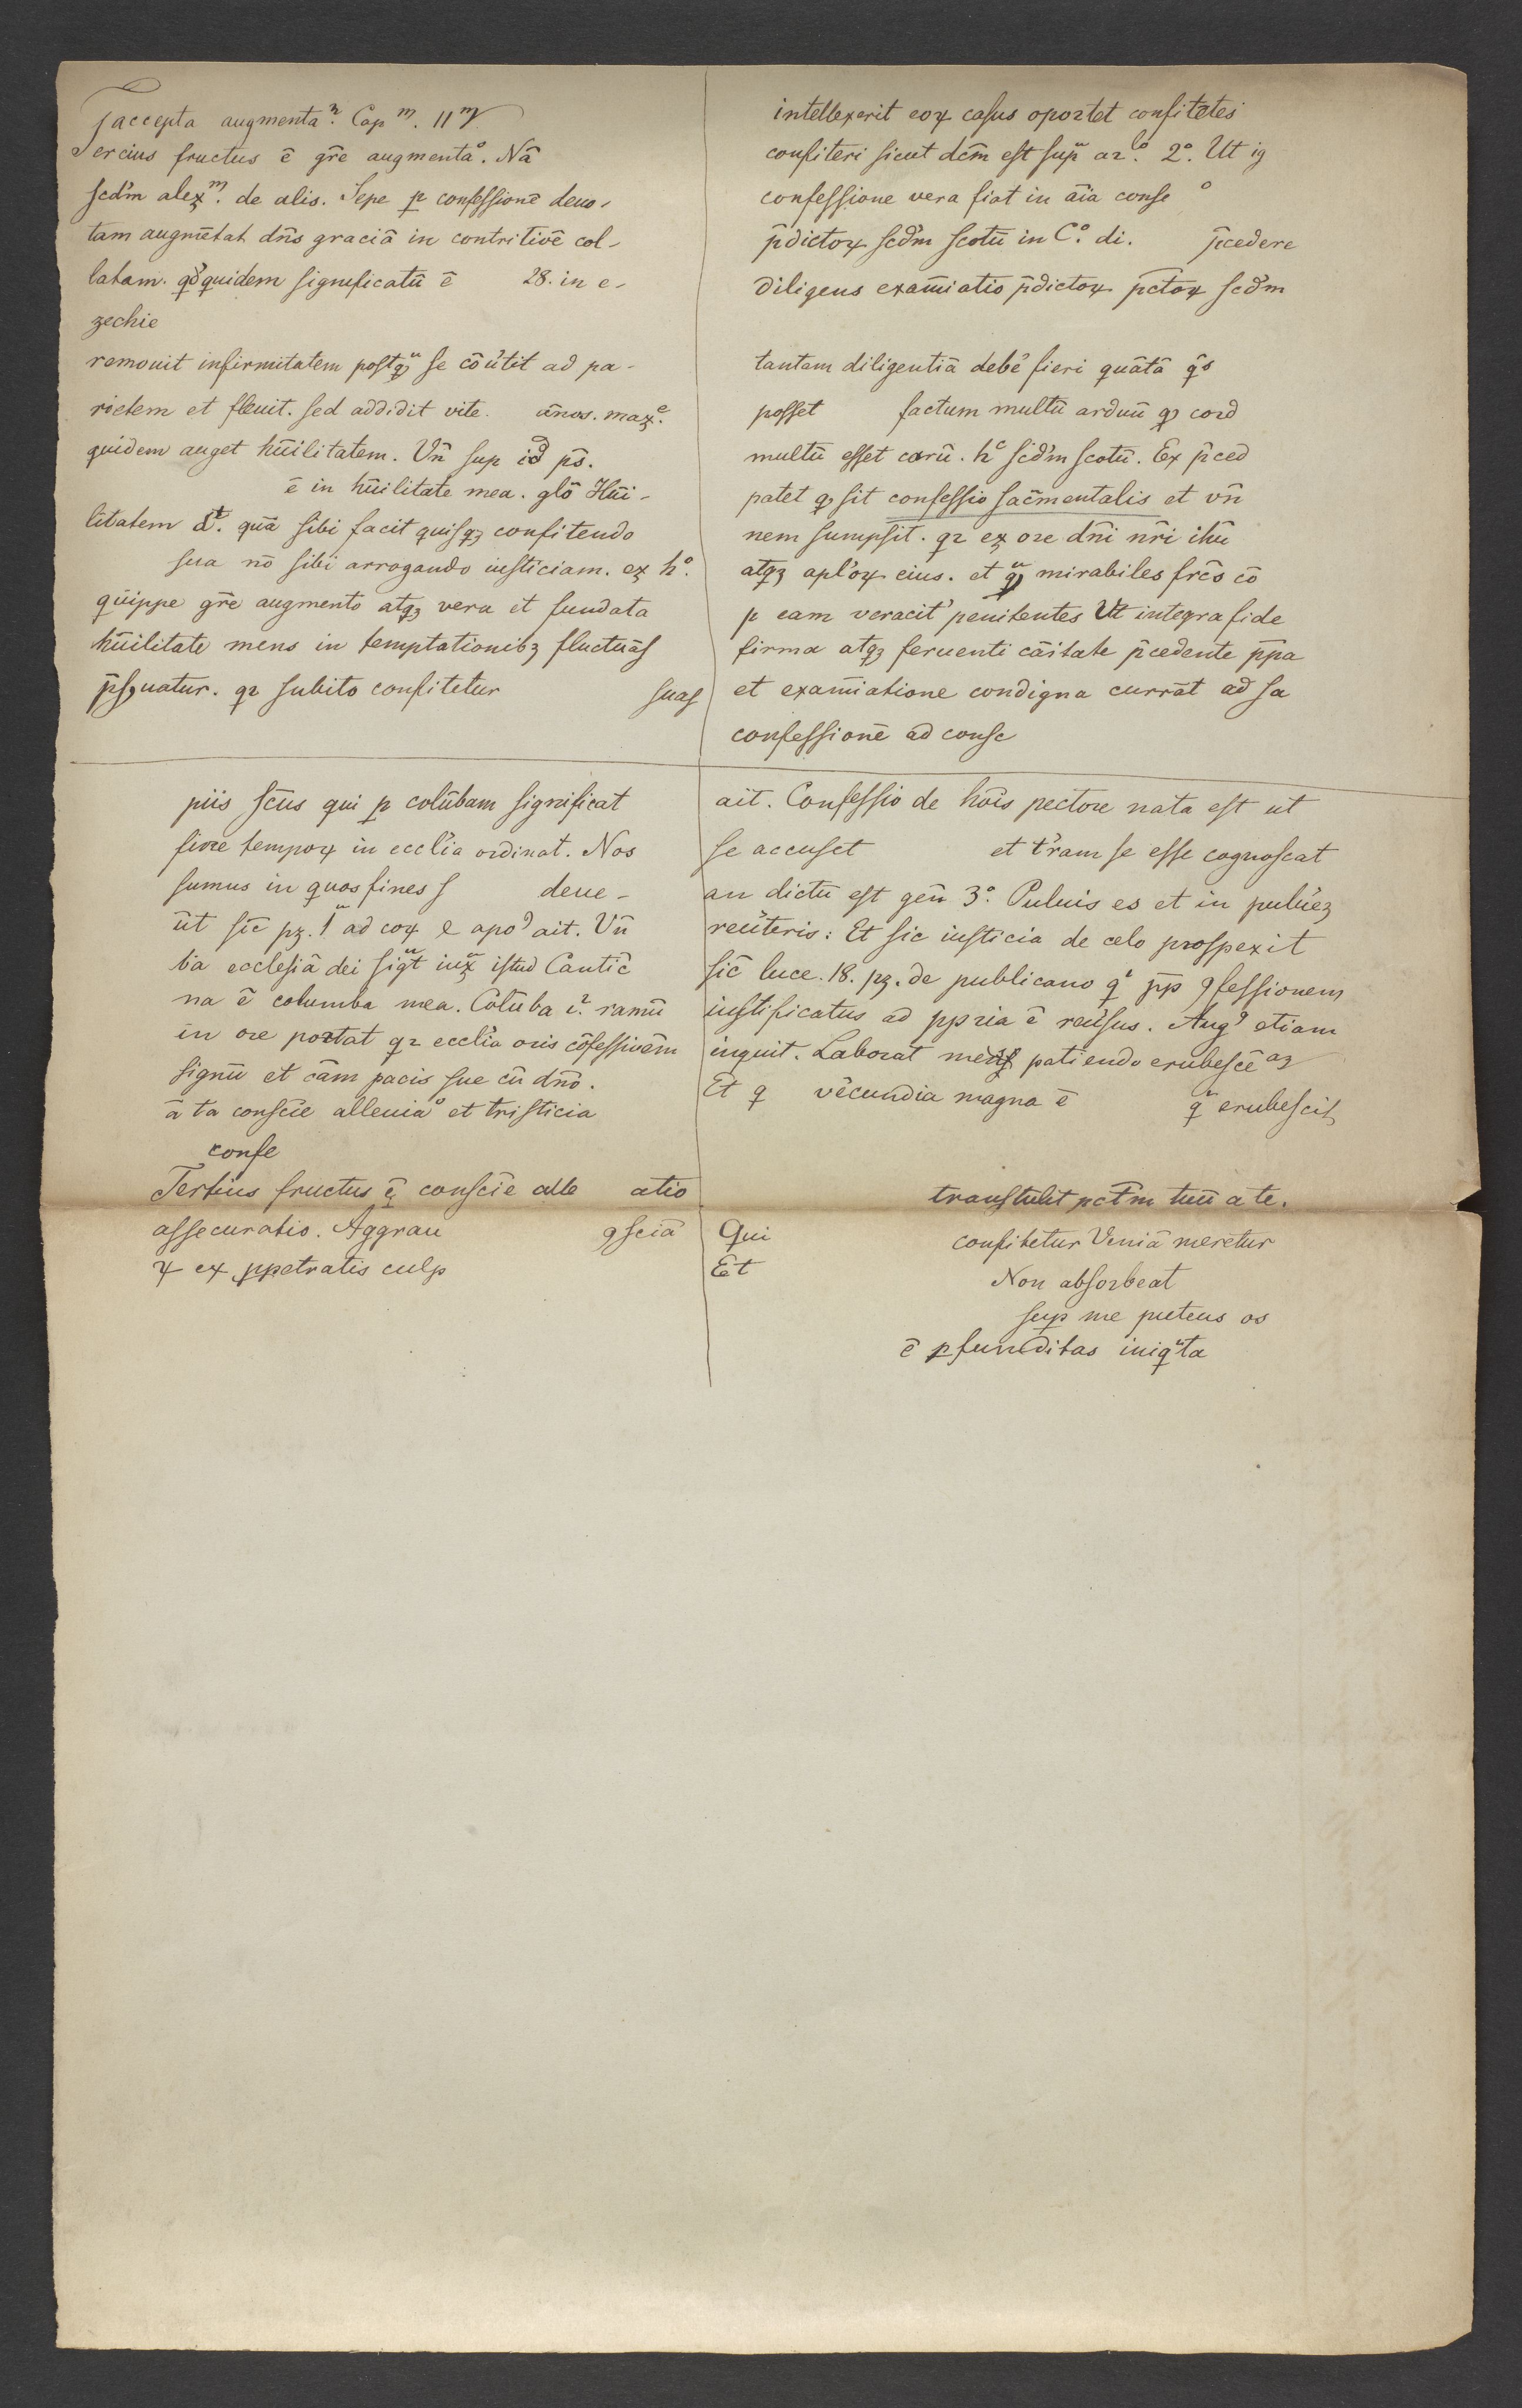 accepta augmenta². Cap m. 11 m
Tercius fructus ē gr̄e augmentaº. Nā
scd'm alexᵐ. de alis. Sepe ꝑ confessionē deuo-
tam augmētat dn̄s graciā in contritiōe col-
latam. qd' quidem significatū ē 28. in e-
zechie
remouit infirmitatem postqᵃ se cōu'tit ad pa-
rietem et fleuit. sed addidit vite. ānos. maxᵉ.
quidem auget hūilitatem. Vn̄ sup id ps̄.
ē in hūilitate mea. glō Hūi-
litatem d.t. quā sibi facit quisqꝫ confitendo
sua nō sibi arrogando iusticiam. ex hº.
quippe gr̄e augmento atqꝫ vera et fundata
hūilitate mens in temptationibꝫ fluctuās
p̄sꝫuatur. qꝛ subito confitetur suas
intellexerit eoꝝ casus opoꝛtet confitētes
confiteri sicut dcm̄ est supᵃ aꝛº. 2º. Ut ig
confessione vera fiat in āia conse º
p̄dictoꝝ scd'm scotū in Cº. di. p̄cedere
diligens exam̄iatio p̄dictoꝝ pc̄toꝝ scd'm
tantam diligentiā debē fieri quātā qⁱs
posset factum multū arduū qꝫ coꝛd
multū esset carū. hᶜ scd'm scotū. Ex p̄ced
patet qꝫ sit confessio sac̄mentalis et vn̄
nem sumpsit. qꝛ ex oꝛe dn̄i nr̄i ihū
atqꝫ apl'oꝝ eius. et qᵃ mirabiles fr̄cs cō
ꝑ eam veracit' penitentes Ut integra fide
firma atqꝫ feruenti cāitate p̄cedente p̄pa
et exam̄iatione condigna currāt ad sa
confessionē ad consc
piis sc̄us qui ꝑ colūbam significat
siue tempoꝝ in eccl'ia oꝛdinat. Nos
sumus in quos fines s deue-
ūt sic̄ pꝫ. 1ᵃ ad coꝝ e apo⁹ ait. Vn̄
ba ecclesiā dei sigᵃt iuxᵃ istud Cantic̄
na ē columba mea. Colūba i². ramū
in oꝛe poꝛtat qꝛ eccl'ia oꝛis cōfessiōem
signū et cām pacis sue cū dn̄o.
ā ta consc̄ie alleuiaº et tristicia
confe
Tertius fructus ē consc̄ie alle atio
assecuratio. Aggrau ꝯsciā
ꝝ ex ꝑpetratis culp
ait. Confessio de hōis pectoꝛe nata est ut
se accuset et t'ram se esse cognoscat
an dictū est gen̄ 3º. Puluis es et in pulu'eꝫ
reu'teris: Et sic iusticia de celo pꝛospexit
sic̄ luce. 18. pꝫ. de publicano qⁱ pp̄ ꝯfessionem
iustificatus ad ꝓpꝛia ē reu'sus. Aug⁹ etiam
inquit. Laboꝛat mens patiendo erubescē aꝫ
Et q vēcundia magna ē qⁱ erubescit
transtulit pct̄m tuū a te.
Qui confitetur Veniā meretur
Et Non absoꝛbeat
sup me puteus os
ē ꝓfunditas iniqⁱta